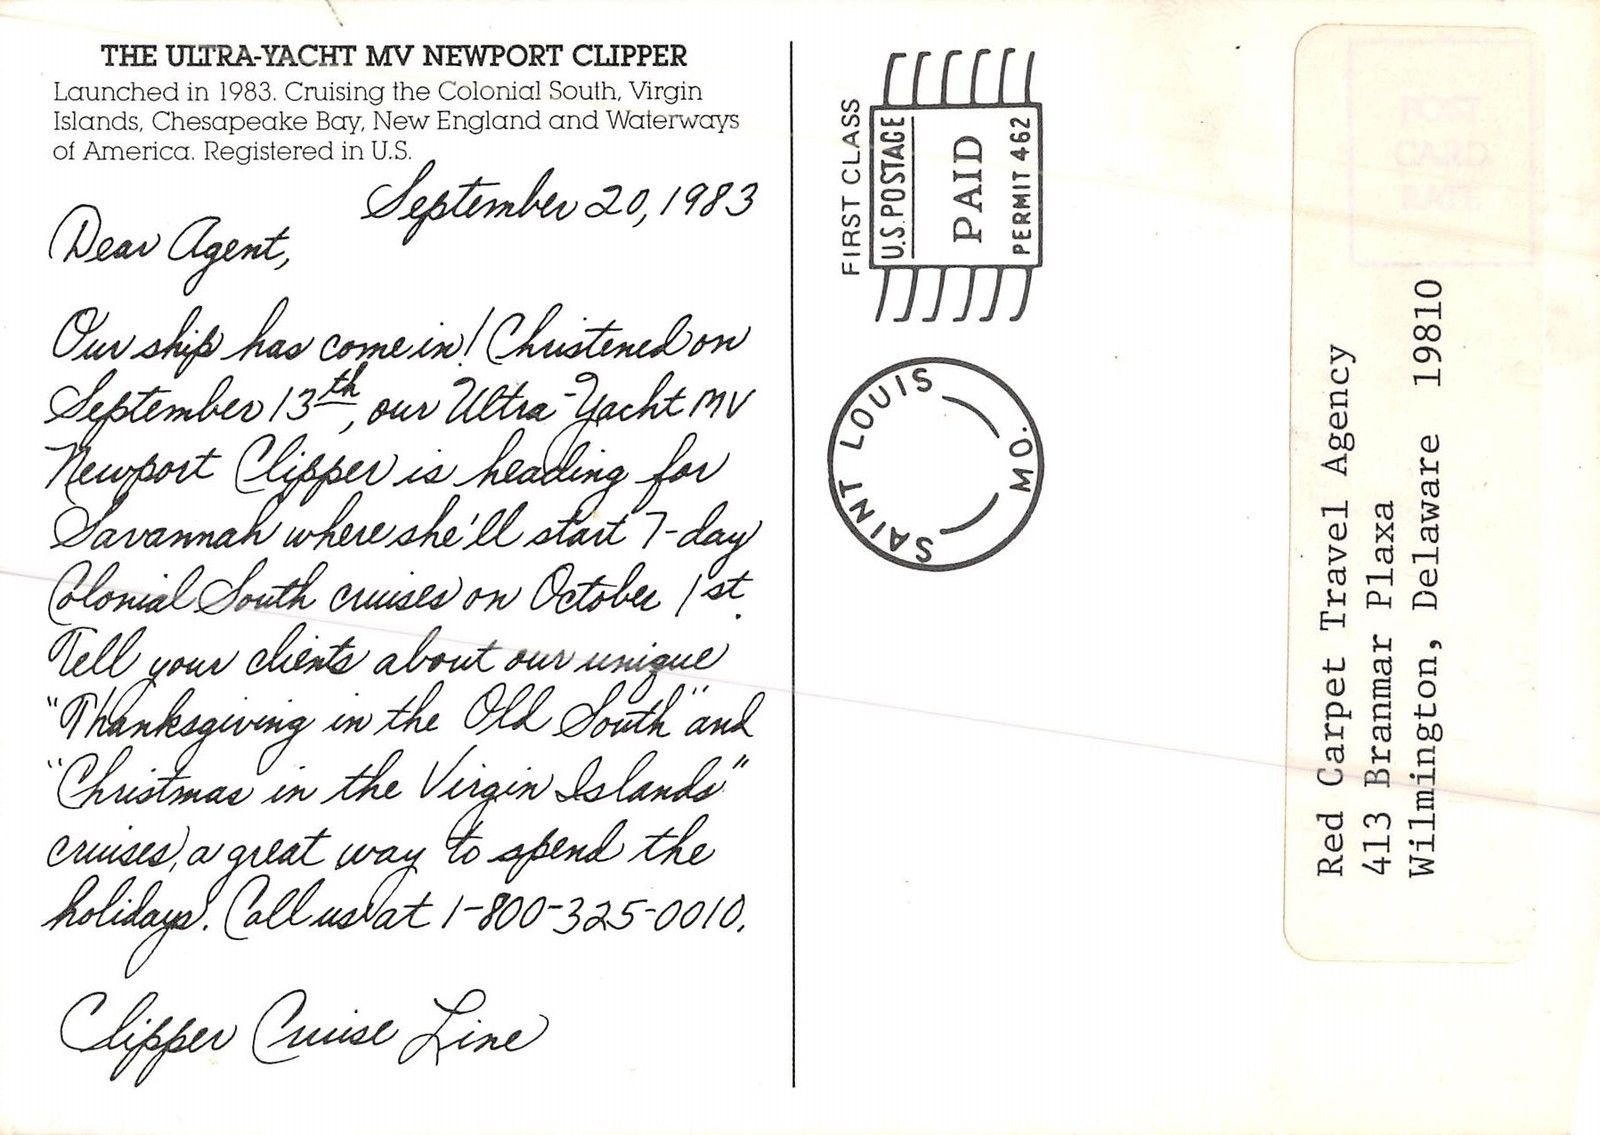 THE ULTRA-YACHT MV NEWPORT CLIPPER
Launched in 1983. Cruising the Colonial South, Virgin
Islands, Chesapeake Bay, New England and Waterways
of America. Registered in U.S.
September 20, 1983
Dear Agent,
Our ship has come in! Christened on
September 13th, our Ultra-Yacht MV
Newport Clipper is heading for
Savannah where she'll start 7-day
Colonial South cruises on October 1st.
Tell your clients about our unique
"Thanksgiving in the Old South" and
"Christmas in the Virgin Islands"
cruises, a great way to spend the
holidays. Call us at 1-800-325-0010.
Clipper Cruise Line
FIRST CLASS
U.S. POSTAGE
PAID
PERMIT 462
SAINT LOUIS MO.
POST
CARD
RATE
Red Carpet Travel Agency
413 Branmar Plaxa
Wilmington, Delaware 19810